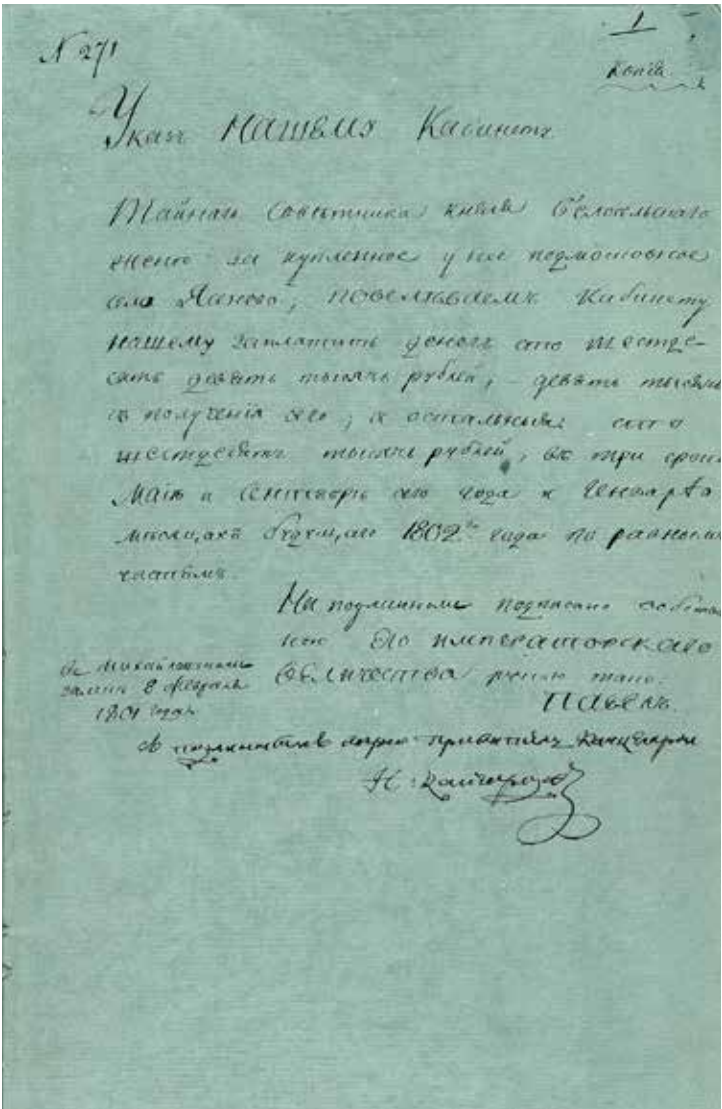 N 271
1
Копія
Указъ нашему Кабинету
Тайнаго Советника князя Белосельскаго
жене за купленное у нее подмосковное
село Ясенево, повелеваемъ Кабинету
нашему заплатить денегъ сто шестде-
сятъ девять тысячъ рублей, - девять тысячъ
по полученіи сего, а остальныя сто
шестдесятъ тысячъ рублей, въ три срока
Маіе и Сентябре сего года и Генваре
месяцахъ будущаго 1802го года по равнымъ
частямъ.
На подлинномъ подписано собствен-
ною Его императорскаго
Величества рукою тако:
Павелъ.
въ Михайловскомъ
замке 8 февраля
1801 года
Съ подлиннымъ верно: Канцеляріи
Н: